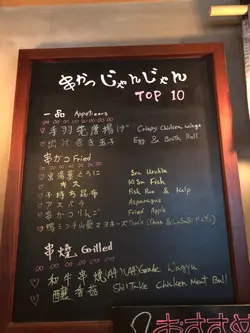 串かつじゃんじゃん
TOP 10
一品 Appetizers
♡ 手羽先唐揚げ Crispy Chicken wings
♡ 出汁巻き玉子 Egg & Broth Roll
串かつ Fried
Sea Urchin
♡ キス Kisu Fish
♡ 子持ち昆布 Fish Roe & Kelp
♡ アスパラ Asparagus
♡ 串かつりんご Fried Apple
Duck
串焼 Grilled
♡ 和牛串焼 Grade Wagyu
♡ 椎茸 Shiitake Chicken Meat Ball
おすすめ